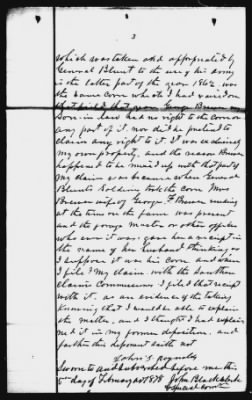 3
which was taken and appropriated by
General Blunt to the use of his army
in the latter part of the year 1862 was
the same corn which I had raised on
that field that year George Brewer my
son in law had no right to the corn or
any part of it nor did he pretend to
claim any right to it. It was exclusively
my own property, and the reason Brewer
happened to be mixed up with that part of
my claim was because when General
Blunts soldiers took the corn Mrs
Brewer wife of George F Brewer residing
at the time on the farm was present
and the forage master or other officer
who ever it was, gave her a receipt in
the name of her husband thinking as
I suppose it was his corn and when
I filed my claim with the Southern
claims Commissioners I filed that receipt
with it, as an evidence of the taking
knowing that I would be able to explain
the matter, and I thought I had explain
ed it in my former deposition. and
further this deponent saith not
John S Reynolds
Sworn to and subscribed before me this
5th day of February AD 1878 John